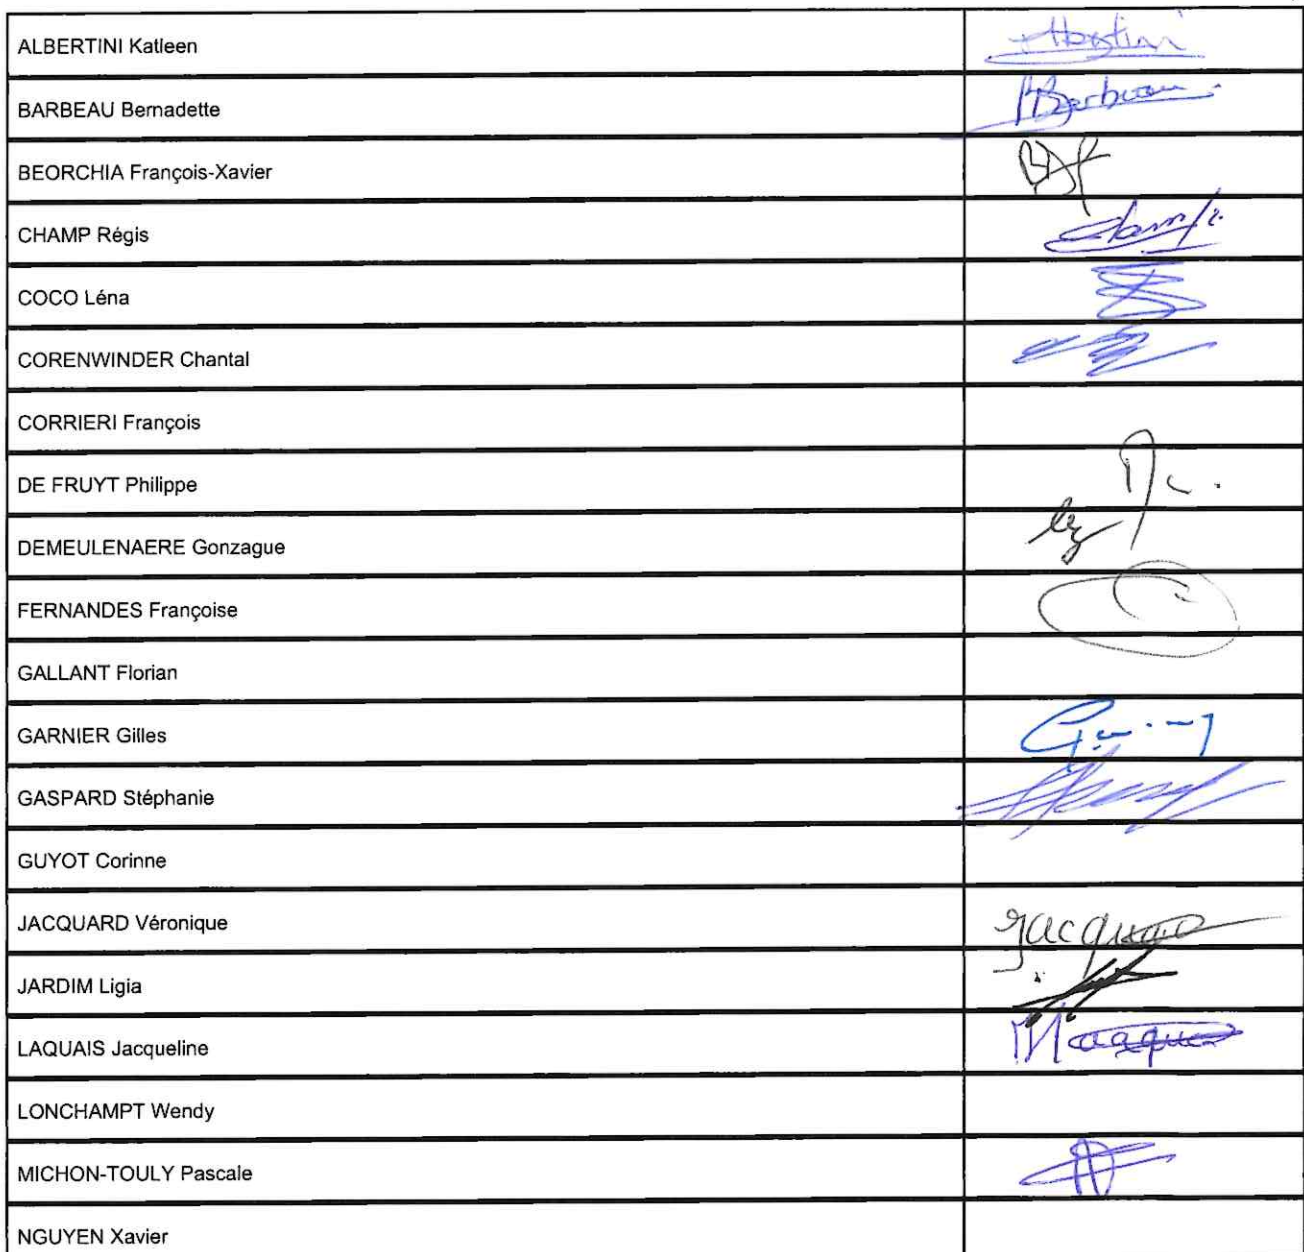 ALBERTINI Katleen
BARBEAU Bernadette
BEORCHIA François-Xavier
CHAMP Régis
COCO Léna
CORENWINDER Chantal
CORRIERI François
DE FRUYT Philippe
DEMEULENAERE Gonzague
FERNANDES Françoise
GALLANT Florian
GARNIER Gilles
GASPARD Stéphanie
GUYOT Corinne
JACQUARD Véronique
JARDIM Ligia
LAQUAIS Jacqueline
LONCHAMPT Wendy
MICHON-TOULY Pascale
NGUYEN Xavier